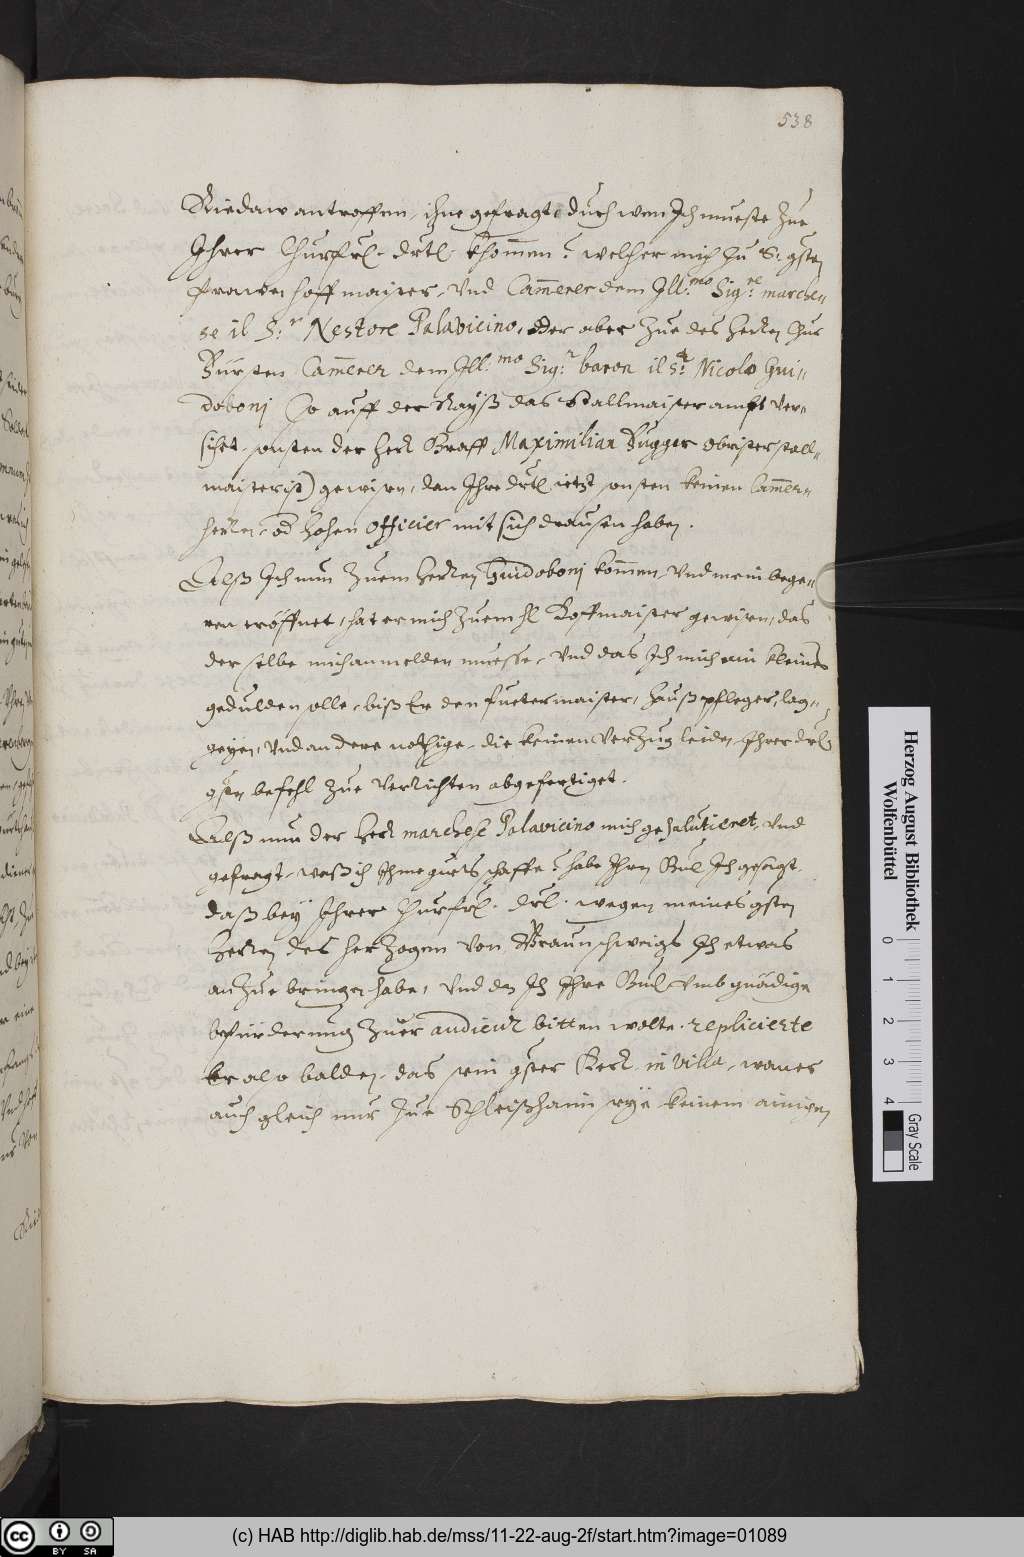 538
Riedaw antroffen, ihne gefragt, durch wen Ich mueste zue
Ihrer Churfrl. drtl. khom̄en? welcher mich zu S: gsten
frawen hoffmaister, vnd Cam̄erer dem Ill.mo Sig.re marche„
se il S.r Nestore Palavicino, oder aber zue des herrn Chur
Fürsten Cam̄erer dem Ill.mo Sig.r baron il S.r Nicolo Gui„
doboni (So auff der Rayß das Stallmaister ampt ver„
sihet, sonsten der herr Graff Maximilian Fugger obrister stall„
maister ist) gewisen, dan Ihre drtl. ietzt sonsten keinen Cam̄er„
herrn, od hohen officier mit sich drausen haben.
Alß Ich nun zuem herrn Guidoboni kom̄en, vnd mein bege„
ren eröffnet, hat er mich zuem hl Hoffmaister gewisen, das
der selbe mich anmelden muesse, vnd das Ich mich ein kleines
gedulden solle, biß Er den fuetermaister, haußpfleger, lag„
geyen, vnd andere nothige, die keinen verzug leiden, Ihrer drl.
gsten befehl zue verrichten abgefertiget.
Alß nun der herr marchese Palavicino mich gesalutieret, vnd
gefragt, waß ich Ihme guets schaffe? habe Ihren Gnl Ich gesagt,
daß bey Ihrer Churfrl. drl. wegen meines gsten
herrn des herzogen von Braunschweigs Ich etwas
anzue bringen habe, vnd das Ich Ihre Gnl vmb gnädige
befürderung zuer audienz bitten wolte. replicierte
Er also balden, das sein gster Herr in villa, wan er
auch gleich nur zue Schleißhaim seye keinem ainigen
Herzog August Bibliothek
Wolfenbüttel
0 1 2 3 4
Gray Scale
cc BY SA
(c) HAB http://diglib.hab.de/mss/11-22-aug-2f/start.htm?image=01089